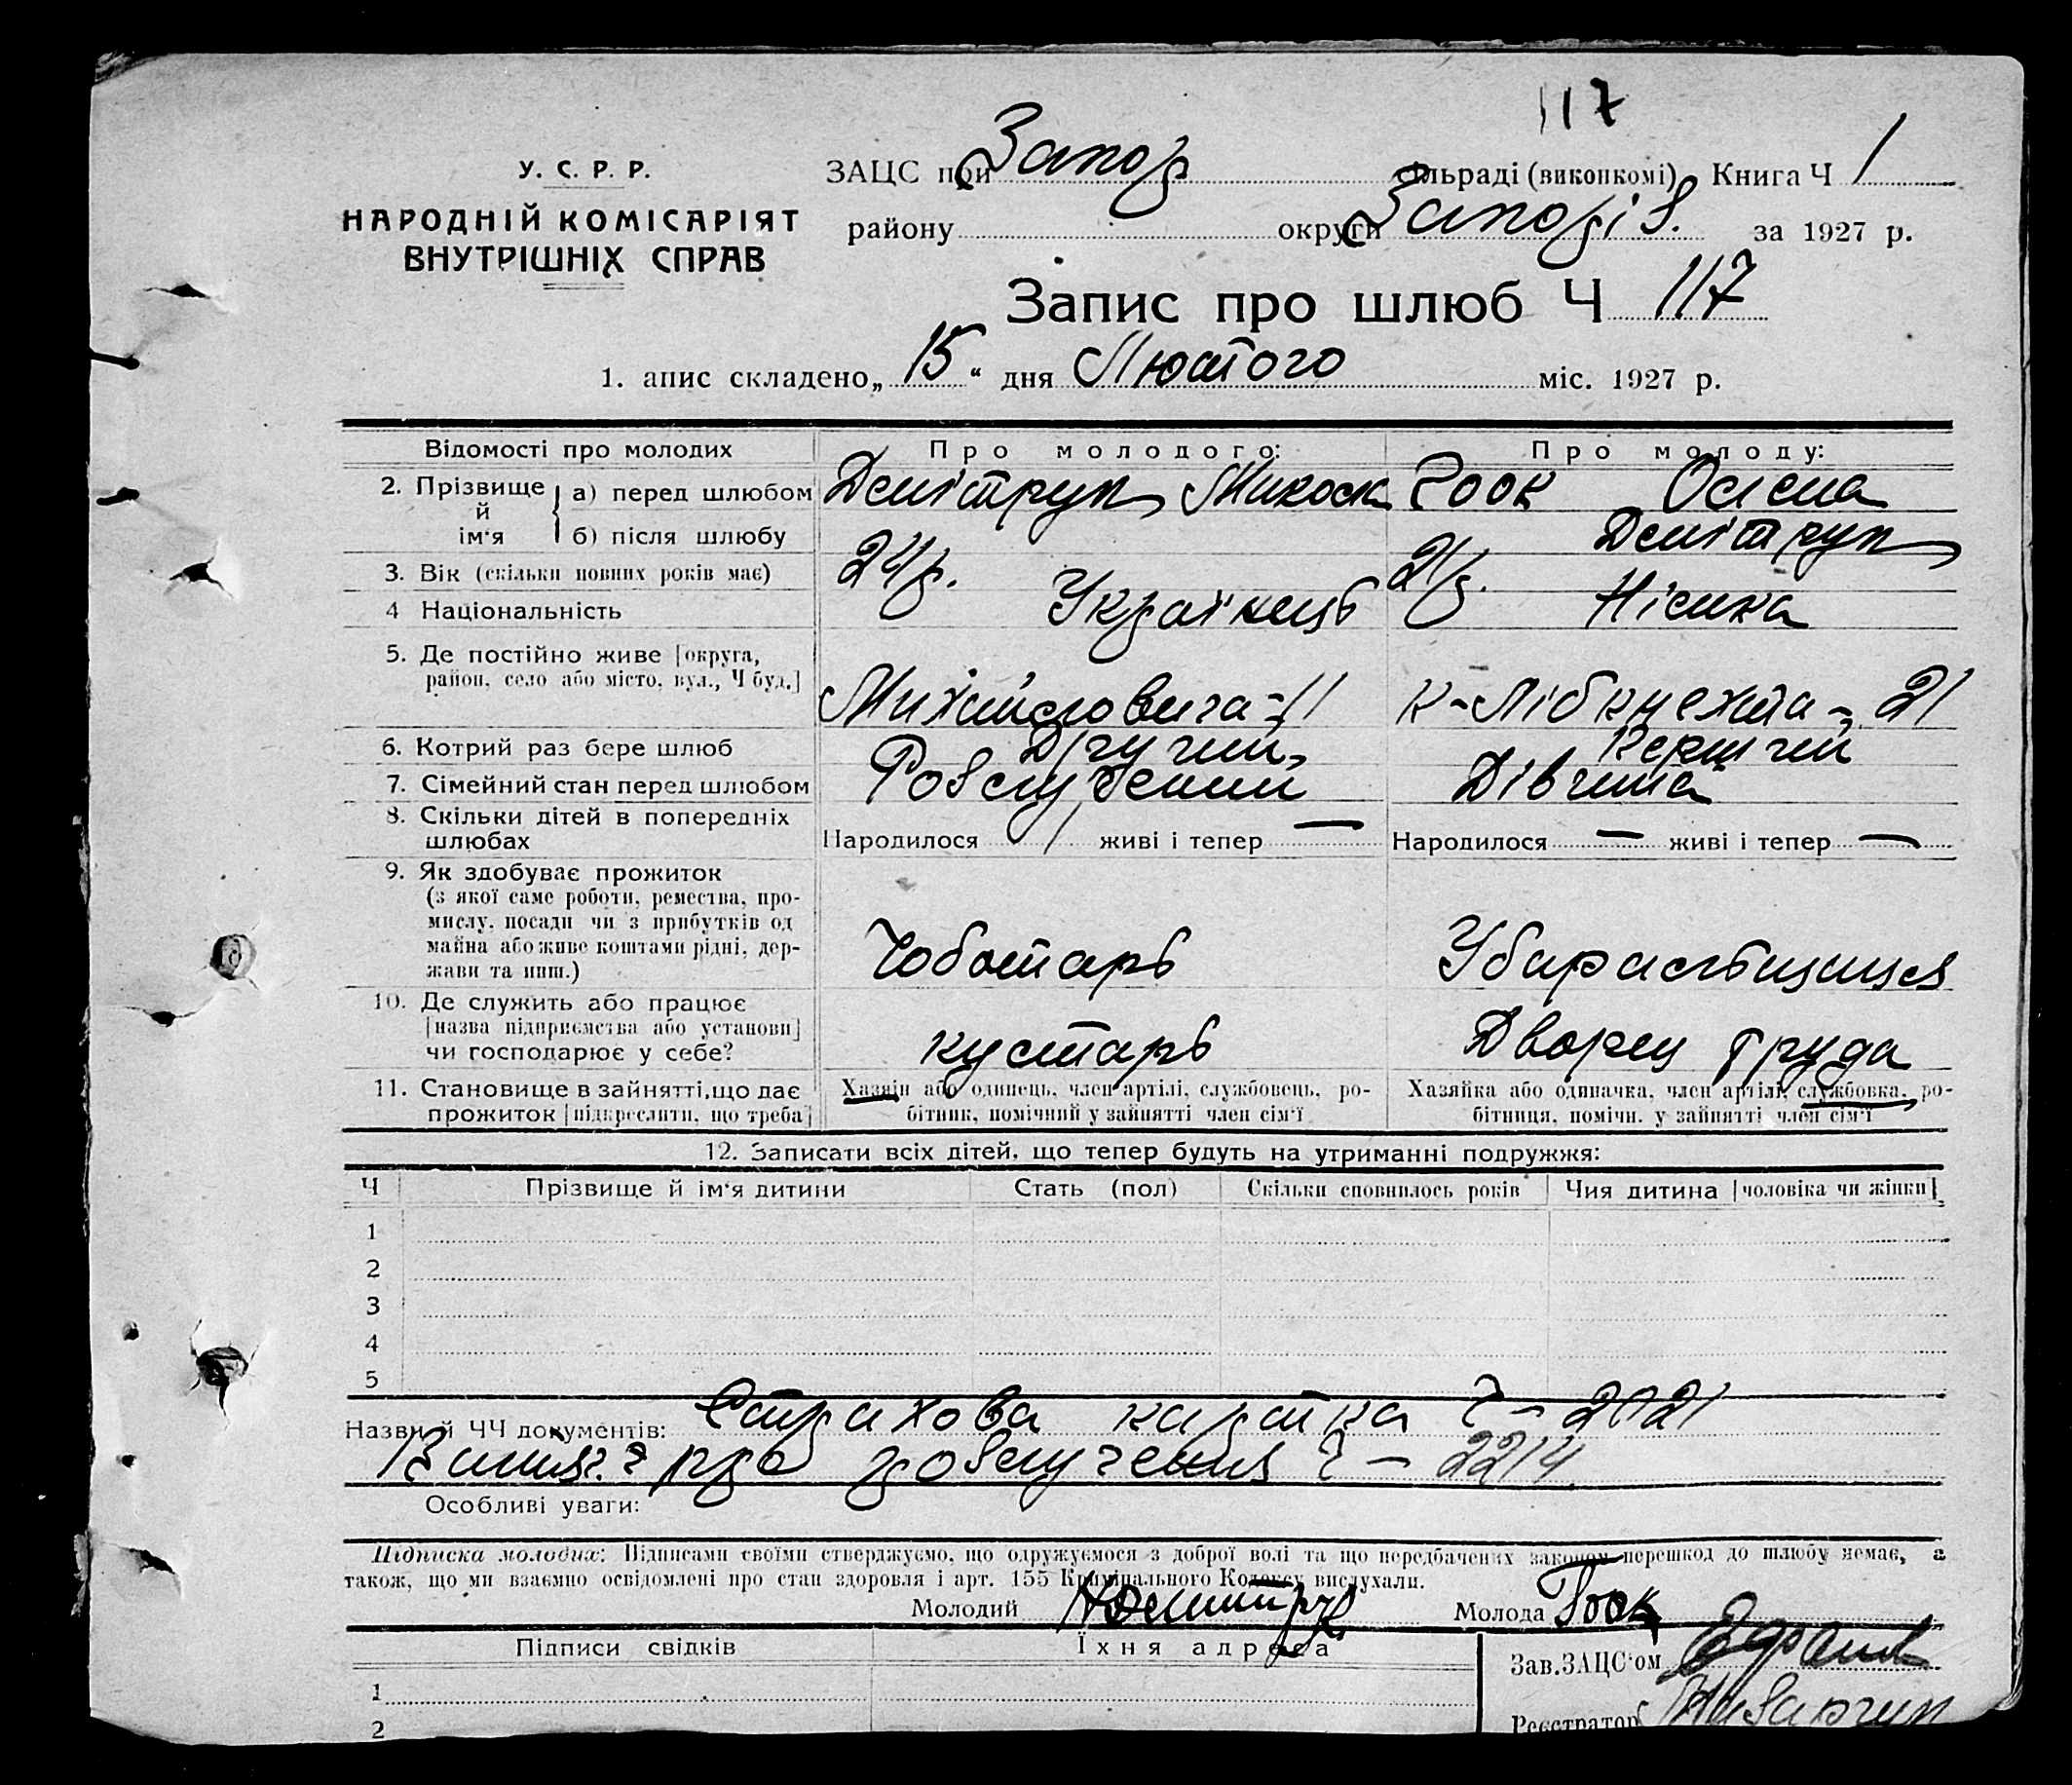 117
У. С. Р. Р.
НАРОДНІЙ КОМІСАРІЯТ
ВНУТРІШНІХ СПРАВ
ЗАЦС при Запор сільраді (виконкомі) Книга Ч 1
району округи Запоріз. за 1927 р.
Запис про шлюб Ч 117
1. апис складено „15“ дня Лютого міс. 1927 р.
Відомості про молодих Про молодого: Про молоду:
2. Прізвище й ім'я а) перед шлюбом Микола Гоок
б) після шлюбу
3. Вік (скільки повних років має) 24 р. 21 р.
4 Національність Українець Німка
5. Де постійно живе [округа,
район, село або місто, вул., Ч буд.] 11 К-Лібкнехта - 21
6. Котрий раз бере шлюб Другий Перший
7. Сімейний стан перед шлюбом Розлучений Дівчина
8. Скільки дітей в попередніх
шлюбах Народилося 1 живі і тепер — Народилося — живі і тепер —
9. Як здобуває прожиток
(з якої саме роботи, ремества, про-
мислу, посади чи з прибутків од
майна або живе коштами рідні, дер-
жави та инш.) Чоботарь Убиральщиця
10. Де служить або працює
[назва підприємства або установи]
чи господарює у себе? кустарь Дворец труда
11. Становище в зайнятті, що дає
прожиток [підкреслити, що треба]
Хазяїн або одинець, член артілі, службовець, ро-
бітник, помічний у зайнятті член сім'ї
Хазяйка або одиначка, член артілі, службовка, ро-
бітниця, помічн. у зайнятті член сім'ї
12. Записати всіх дітей, що тепер будуть на утриманні подружжя:
Ч Прізвище й ім'я дитини Стать (пол) Скільки сповнилось років Чия дитина [чоловіка чи жінки]
1
2
3
4
5
Назви й ЧЧ документів: Страхова картка Ч - 2021
про розлучення Ч - 2214
Особливі уваги:
Підписка молодих: Підписами своїми стверджуємо, що одружуємося з доброї волі та що передбачених законом перешкод до шлюбу немає, а
також, що ми взаємно освідомлені про стан здоровля і арт. 155 Кримінального Кодексу вислухали.
Молодий Молода Гоок
Підписи свідків Їхня адреса
Зав. ЗАЦС'ом
1
Реєстратор
2